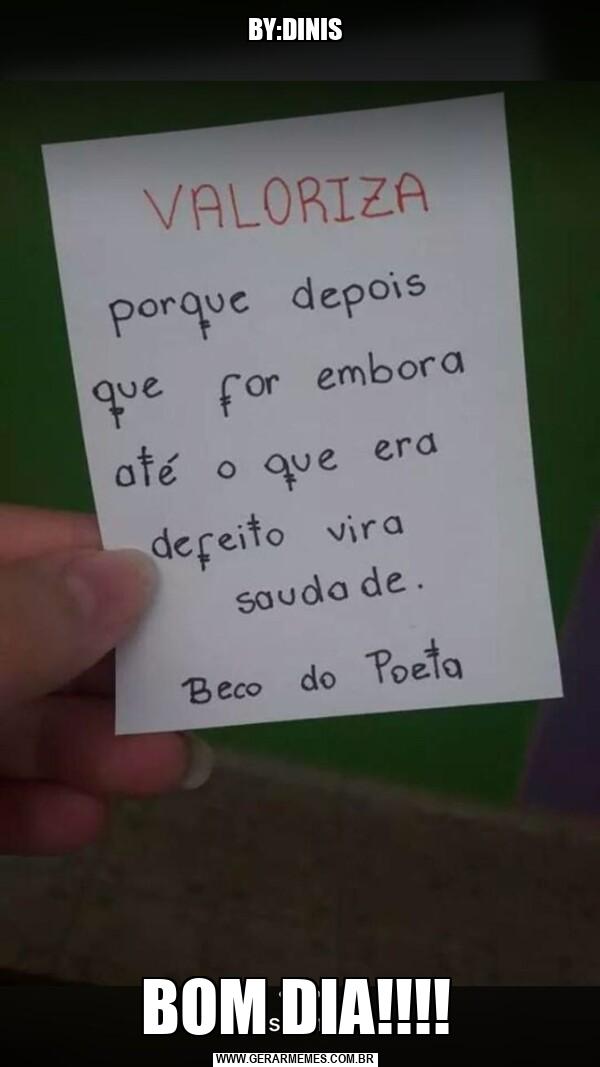 BY:DINIS
VALORIZA
porque depois
que for embora
até o que era
defeito vira
saudade.
Beco do Poeta
BOM DIA!!!!
WWW.GERARMEMES.COM.BR